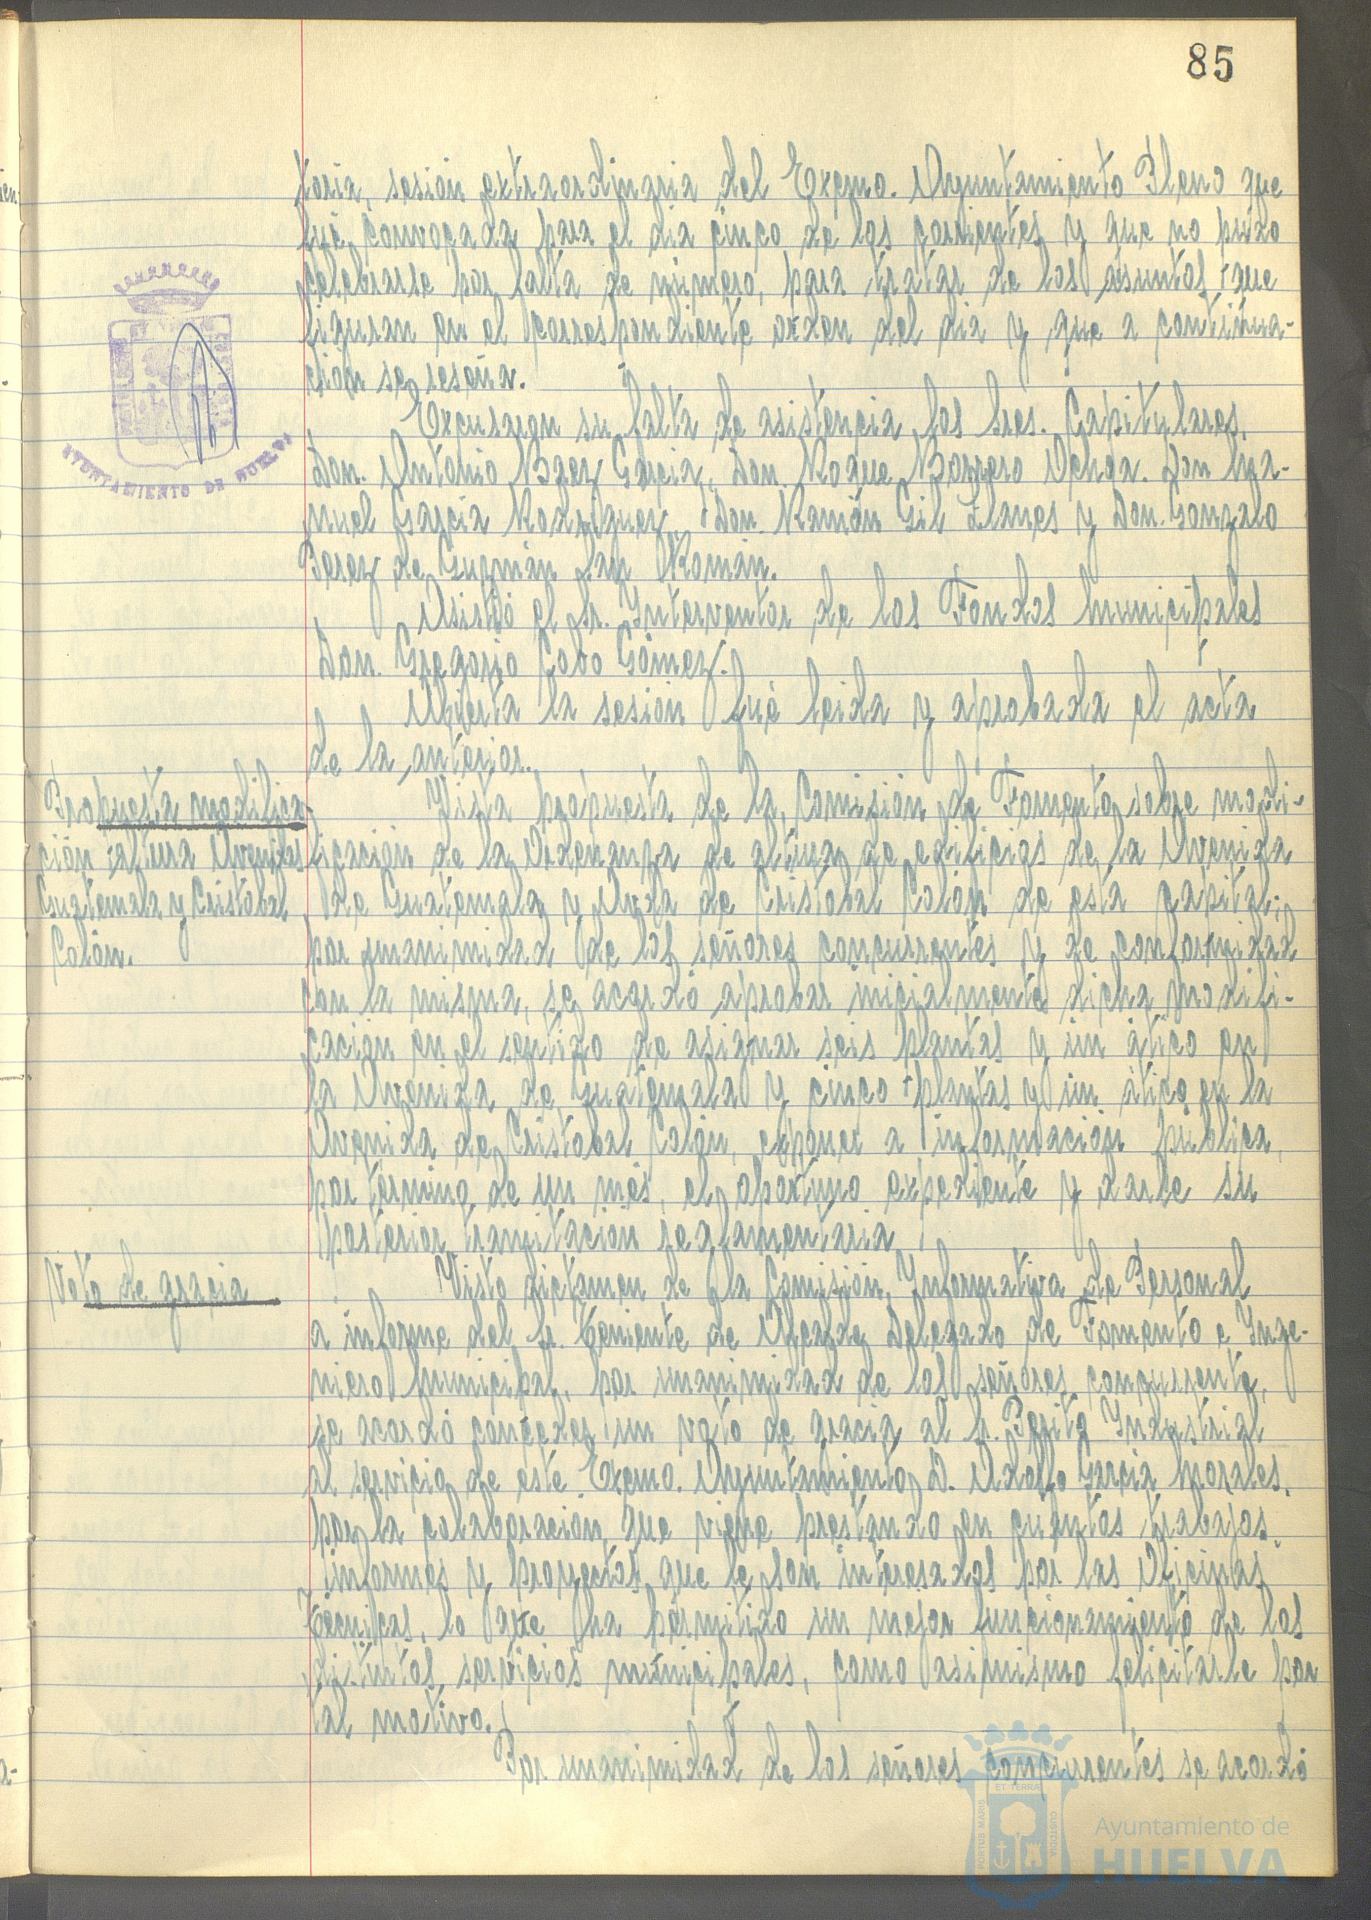 85
toria, sesión extraordinaria del Excmo. Ayuntamiento Pleno que
fué convocada para el dia cinco de los corrientes y que no pudo
celebrarse por falta de número, para tratar de los asuntos que
figuran en el correspondiente orden del dia y que a continua-
ción se reseña.
Excusaron su falta de asistencia los Sres. Capitulares,
Don Antonio Baez Garcia, Don Roque Barrero Ochoa. Don Ma-
nuel Garcia Rodriguez, Don Ramón Gil Llanes y Don Gonzalo
Perez de Guzmán San Román.
Asistió el Sr. Interventor de los Fondos Municipales
Don Gregorio Cobo Gómez.
Abierta la sesión fué leida y aprobada el acta
de la anterior.
Propuesta modifica-
ción altura Avenidas
Guatemala y Cristóbal
Colón.
Vista propuesta de la Comisión de Fomento sobre modi-
ficación de la Ordenanza de altura de edificios de la Avenida
de Guatemala y Avda de Cristobal Colón de esta capital,
por unanimidad de los señores concurrentes y de conformidad
con la misma, se acordó aprobar inicialmente dicha modifi-
cación en el sentido de asignar seis plantas y un ático en
la Avenida de Guatemala y cinco plantas y un ático en la
Avenida de Cristobal Colón, exponer a información pública,
por término de un mes, el oportuno expediente y darle su
posterior tramitación reglamentaria
Voto de gracia
Visto dictamen de la Comisión Informativa de Personal
a informe del Sr. Teniente de Alcalde Delegado de Fomento e Inge-
niero Municipal, por unanimidad de los señores concurrente,
se acordó conceder un voto de gracia al Sr. Perito Industrial
al servicio de este Excmo. Ayuntamiento D. Adolfo Garcia Morales,
por la colaboración que viene prestando en cuantos trabajos,
informes y proyectos que le son interesados por las Oficinas
Técnicas, lo que ha permitido un mejor funcionamiento de los
distintos servicios municipales, como asimismo felicitarle por
tal motivo.
Por unanimidad de los señores concurrentes se acordó
AYUNTAMIENTO DE HUELVA
Ayuntamiento de
HUELVA